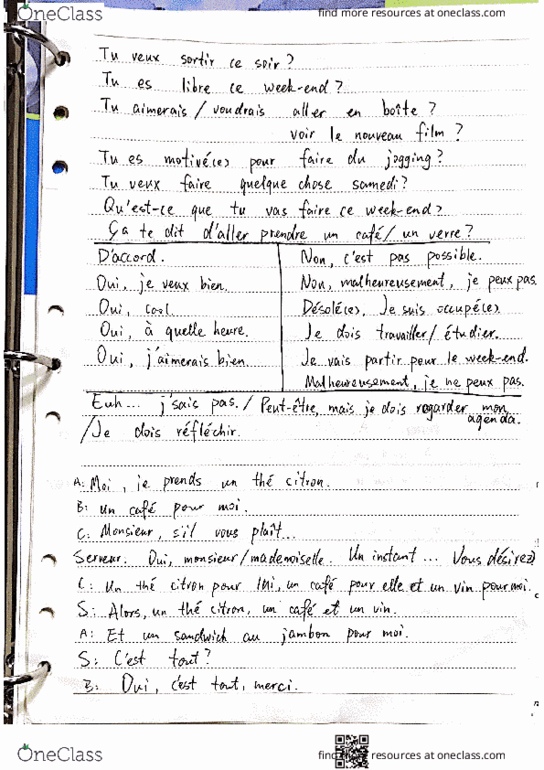 OneClass
find more resources at oneclass.com
Tu veux sortir ce soir ?
Tu es libre ce week-end ?
Tu aimerais / voudrais aller en boîte ?
voir le nouveau film ?
Tu es motivé(e) pour faire du jogging ?
Tu veux faire quelque chose samedi ?
Qu'est-ce que tu vas faire ce week-end ?
Ça te dit d'aller prendre un café / un verre ?
D'accord. Non, c'est pas possible.
Oui, je veux bien. Non, malheureusement, je peux pas.
Oui, cool. Désolé(e), Je suis occupé(e).
Oui, à quelle heure. Je dois travailler / étudier.
Oui, j'aimerais bien. Je vais partir pour le week-end.
Malheureusement, je ne peux pas.
Euh... j'sais pas. / Peut-être, mais je dois regarder mon
agenda.
/ Je dois réfléchir.
A: Moi, je prends un thé citron.
B: un café pour moi.
C: Monsieur, s'il vous plaît...
Serveur: Oui, monsieur / mademoiselle. Un instant ... Vous désirez?
C: Un thé citron pour lui, un café pour elle et un vin pour moi.
S: Alors, un thé citron, un café et un vin.
A: Et un sandwich au jambon pour moi.
S: C'est tout ?
B: Oui, c'est tout, merci.
OneClass
find more resources at oneclass.com